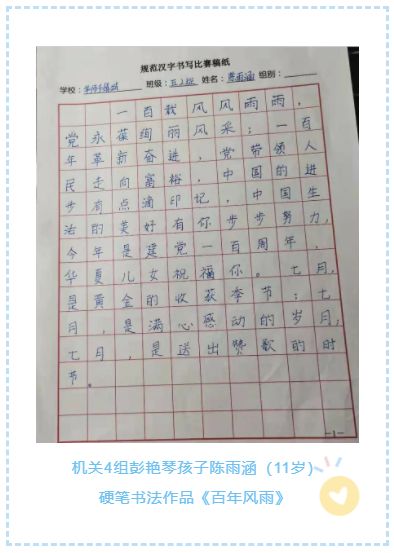 规范汉字书写比赛稿纸
学校： 班级：五2班 姓名：陈雨涵 组别：
一百载风风雨雨，
党永葆绚丽风采；一百
年革新奋进，党带领人
民走向富裕，中国的进
步有点滴印记，中国生
活的美好有你步步努力，
今年是建党一百周年，
华夏儿女祝福你。七月，
是黄金的收获季节；七
月，是满心感动的岁月；
七月，是送出赞歌的时
节。
—1—
机关4组彭艳琴孩子陈雨涵（11岁）
硬笔书法作品《百年风雨》